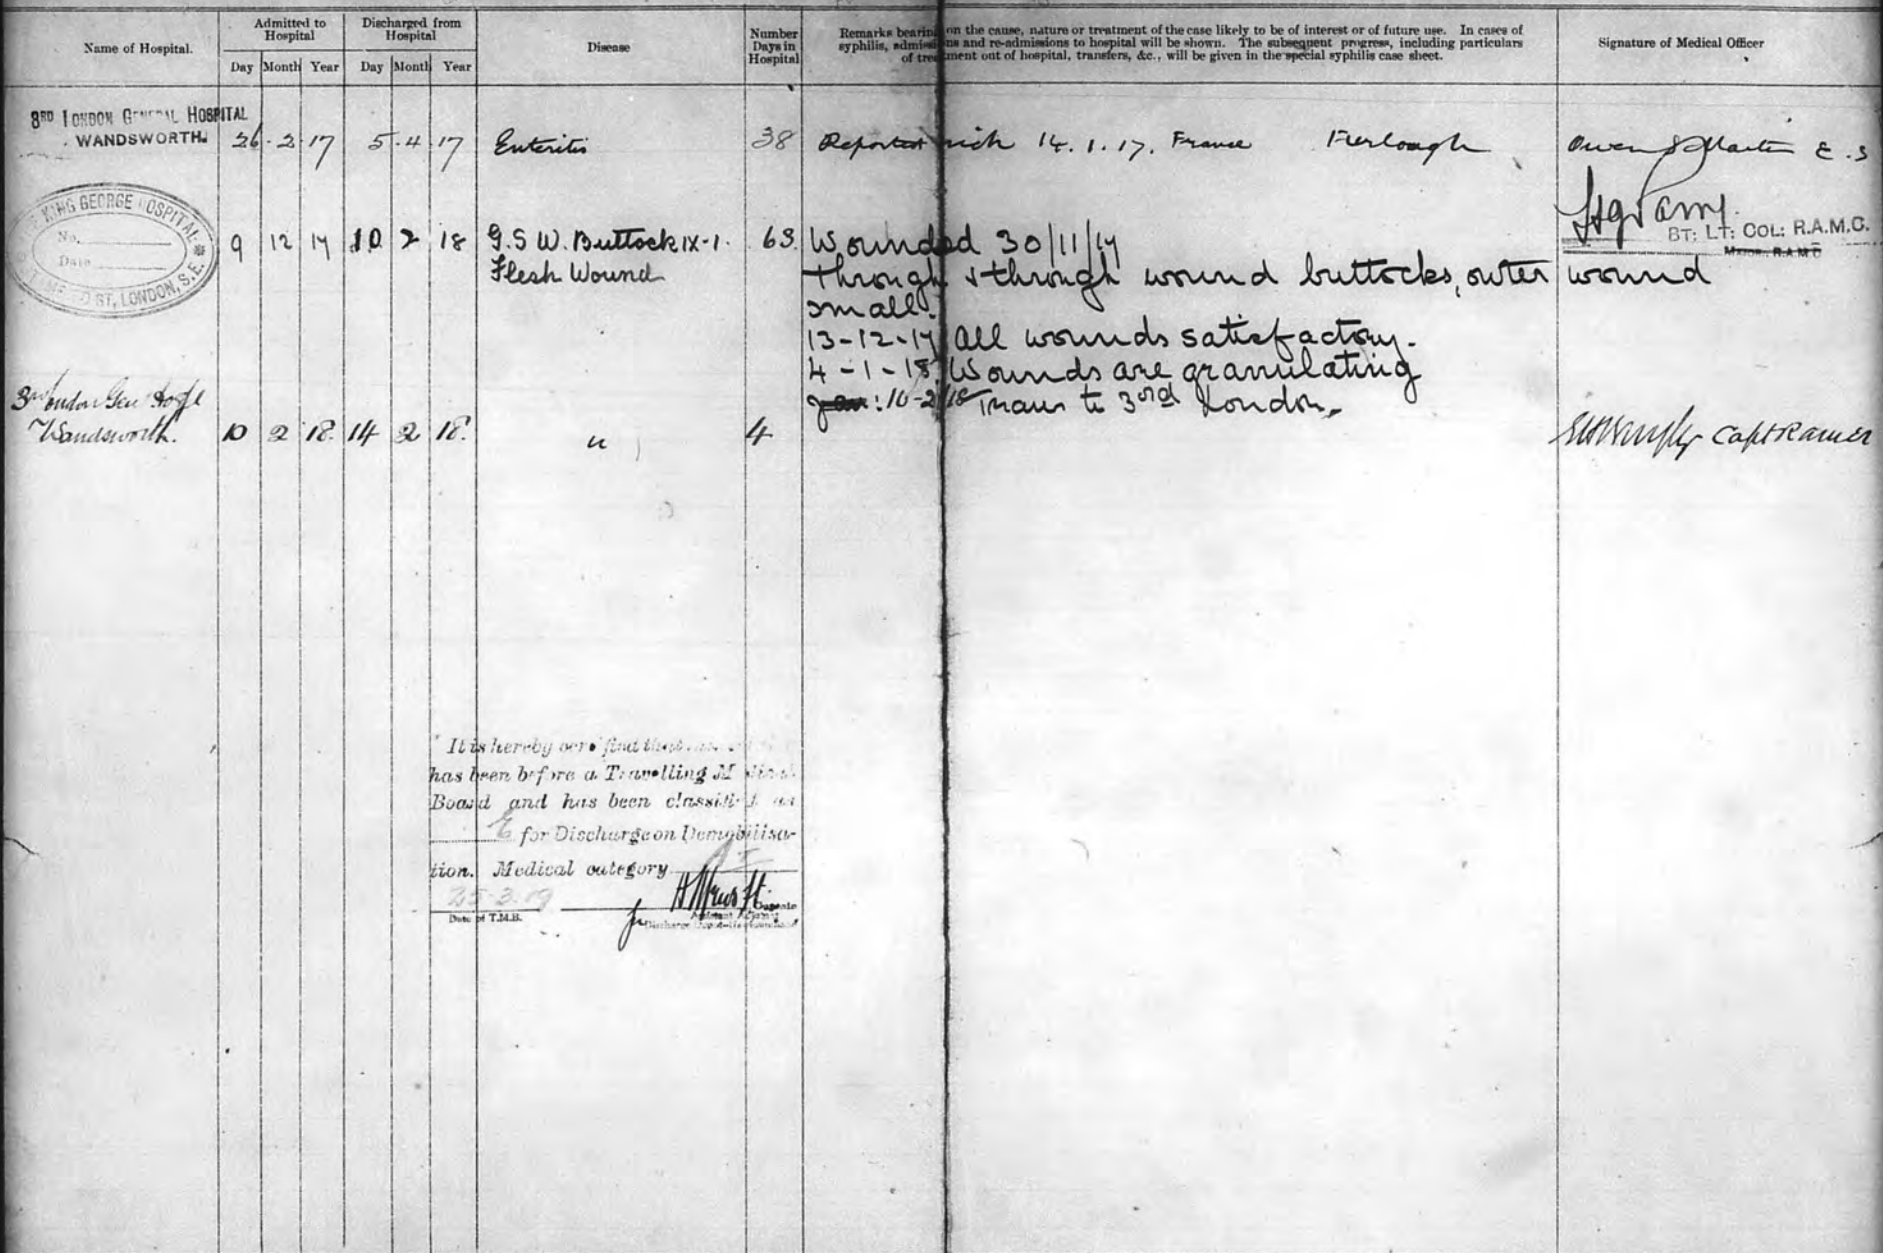 Name of Hospital.
Admitted to Hospital
Discharged from Hospital
Disease
Number Days in Hospital
Remarks bearing on the cause, nature or treatment of the case likely to be of interest or of future use. In cases of
syphilis, admissions and re-admissions to hospital will be shown. The subsequent progress, including particulars
of treatment out of hospital, transfers, &c., will be given in the special syphilis case sheet.
Signature of Medical Officer
Day Month Year Day Month Year
3RD LONDON GENERAL HOSPITAL
WANDSWORTH.
26 . 2 . 17 5 . 4 . 17 Enteritis 38 Reported sick 14.1.17. France Furlough Owen Martin
KING GEORGE HOSPITAL
No.
Date
ST, LONDON, S.E.
9 12 17 10 2 18 G.S W. Buttock IX-1. 63 Wounded 30/11/17
BT: LT: COL: R.A.M.C.
MAJOR. R.A.M.C
Flesh Wound
through & through wound buttocks, outer wound
small.
13-12-17 All wounds satisfactory.
4-1-18 Wounds are granulating
10-2-18 Trans to 3rd London.
3rd London Gen Hospl
Wandsworth. 10 2 18. 14 2 18. " 4 Capt
It is hereby certified that
has been before a Travelling Medical
Board and has been classified as
E for Discharge on Demobilisa-
tion. Medical category
25-3-19
Date of T.M.B.